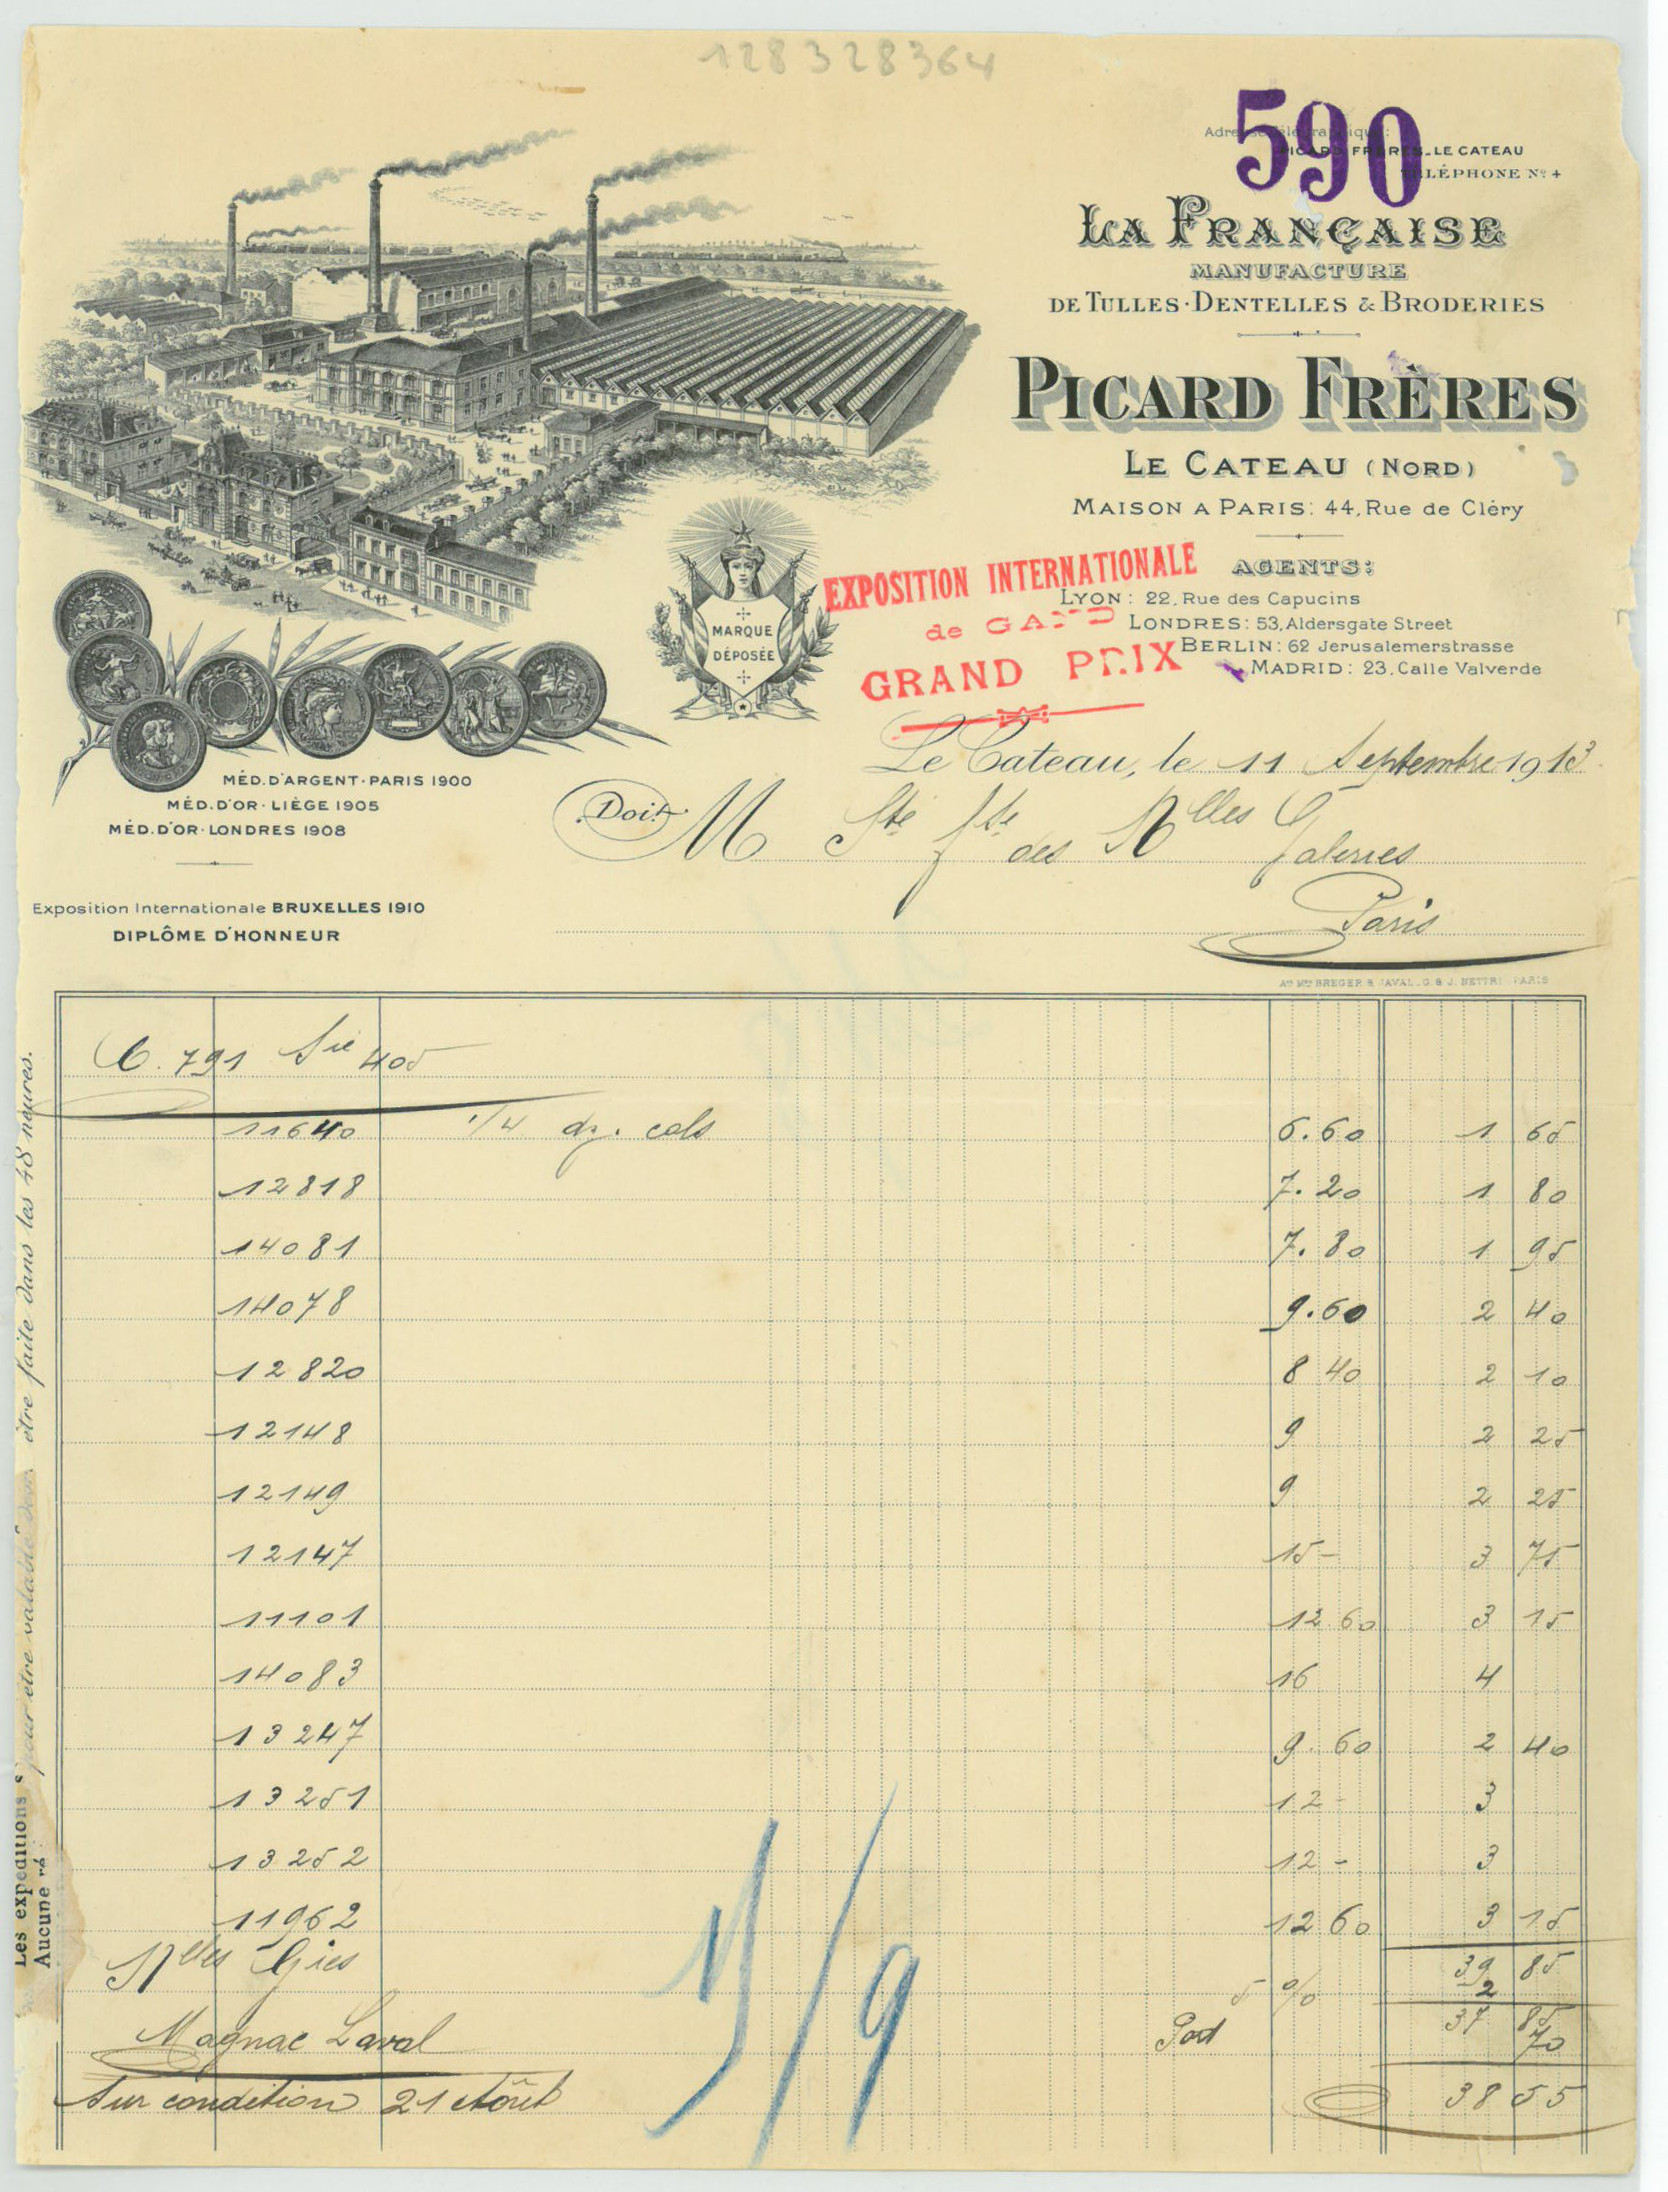 128328364
590
PICARD FRÈRES_LE CATEAU
TÉLÉPHONE Nº 4
LA FRANÇAISE
MANUFACTURE
DE TULLES·DENTELLES & BRODERIES
PICARD FRÈRES
LE CATEAU (NORD)
MAISON A PARIS: 44, Rue de Cléry
AGENTS:
LYON: 22, Rue des Capucins
LONDRES: 53, Aldersgate Street
BERLIN: 62 Jerusalemerstrasse
MADRID: 23, Calle Valverde
EXPOSITION INTERNATIONALE
de GAND
GRAND PRIX
MARQUE
DÉPOSÉE
MÉD. D'ARGENT·PARIS 1900
MÉD. D'OR·LIÈGE 1905
MÉD. D'OR·LONDRES 1908
Exposition Internationale BRUXELLES 1910
DIPLÔME D'HONNEUR
Le Cateau, le 11 Septembre 1913
Doit M Sté fse des Nlles Galeries
Paris
C. 791 Sie 405
11640 1/4 dz. cols 6.60 1 65
12818 7.20 1 80
14081 7.80 1 95
14078 9.60 2 40
12820 8 40 2 10
12148 9 2 25
12149 9 2 25
12147 15- 3 75
11101 12 60 3 15
14083 16 4
13247 9.60 2 40
13251 12- 3
13252 12- 3
11962 12 60 3 15
Nlles Gies 39 85
5 % 2
Magnac Laval 37 85
Port 70
Sur condition 21 Août 38 55
1/9
être faite dans les 48 heures.
pour être valable
Les expéditions
Aucune